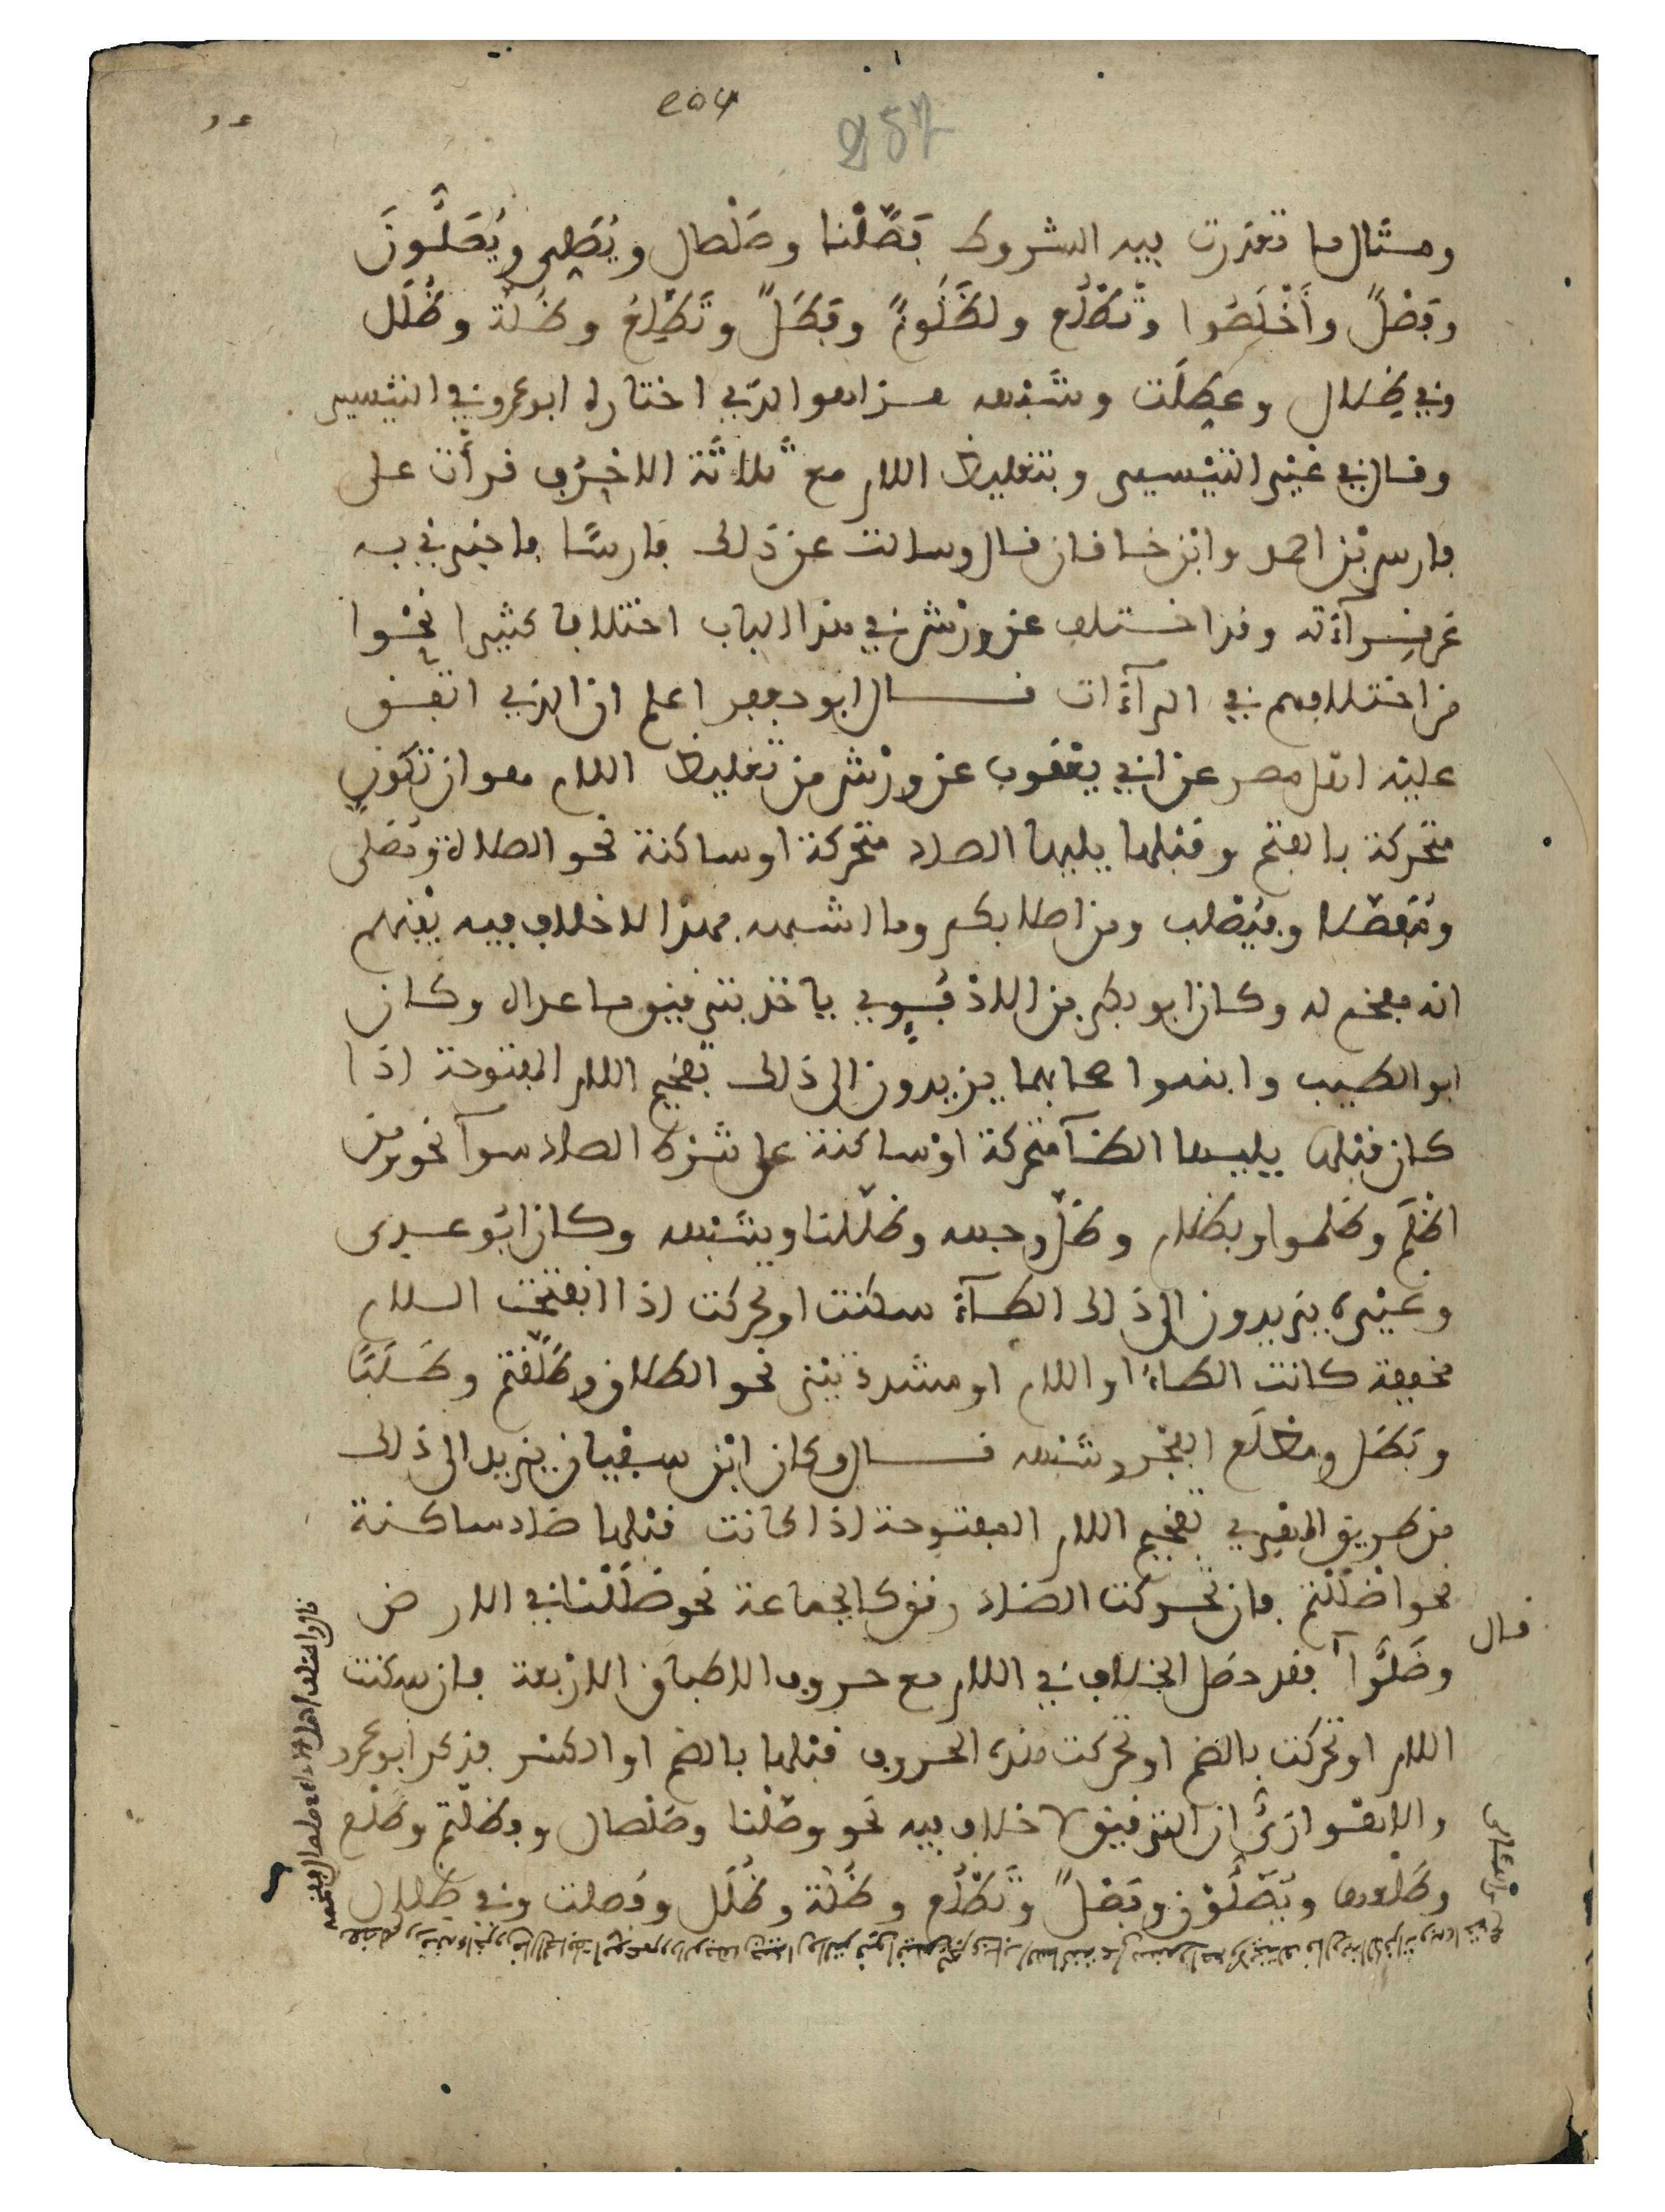 204
257
ومثال ما تعذرت فيه الشروط فَصَّلْنا وصَلْصال ويُصَلِّي ويُصَلُّونَ
وفَصْلً وأَخْلَصُوا وتَطْلُع ولظَلُومٌ وفَطَلٌّ وتَطَّلِعُ وظُلَّة وظُلَل
وفي ظِلال وعُطِلَت وشبهه هذا هو الذي اختاره ابو عمرو في التيسير
وقال في غير التيسير وبتغليظ اللام مع ثلاثة الاحرف قرأت على
فارس بن احمد وابن خاقان قال وسالت عن ذلك فارسًا فاخبرني به
عن قرآءته وقد اختلف عن ورش في هذا الباب اختلافا كثيرا نحوا
من اختلافهم في الرآءات قال ابو جعفر اعلم ان الذي اتفق
عليه اهل مصر عن ابي يعقوب عن ورش من تغليظ اللام هو ان تكون
متحركة بالفتح وقبلها يليها الصاد متحركة او ساكنة نحو الصلاة وتصلى
ومُفَصَّلا وفيُصْلب ومن اصلابكم وما اشبهه فهذا لا خلاف فيه بينهم
انه مفخم له وكان ابو بكر بن الاذفُوي ياخذ بترقيق ما عداه وكان
ابو الطيب وابنه واصحابهما يزيدون الى ذلك تفخيم اللام المفتوحة اذا
كان قبلها يليها الظآ متحركة او ساكنة على شرط الصاد سوآ نحو من
اظْلَم وظلموا وبظلام وظَلَّ وجهه وظلّلنا وشبهه وكان ابو عدي
وغيره يزيدون الى ذلك الطآء سكنت او تحركت اذا انفتحت اللام
مخففة كانت الطاء او اللام او مشددتين نحو الطلاق وطَلَّقتم وطَلَبًا
وبَطَل ومطْلَع الفجر وشبهه قال وكان ابن سفيان يزيد الى ذلك
من طريق المهدي تفخيم اللام المفتوحة اذا كانت قبلها ضاد ساكنة
نحو اضْلَلْتم فان تحركت الضاد رقق كالجماعة نحو ضَلَلْنا في الارض
قال
وضَلُّوآ فقد حصل الخلاف في اللام مع حروف الاطباق الاربعة فان سكنت
اللام او تحركت بالضم او تحركت هذه الحروف قبلها بالضم او الكسر فذكر ابو عمرو
والاهوازيُّ ان الترقيق لا خلاف فيه نحو وصّلْنا وصَلْصال وفظَلْتم وطَلْع
وطَلْعها ويُصَلُّون وفَصْلٌ وتَطْلُع وظُلَّة وظُلَل وفُصِلت وفي ظِلال